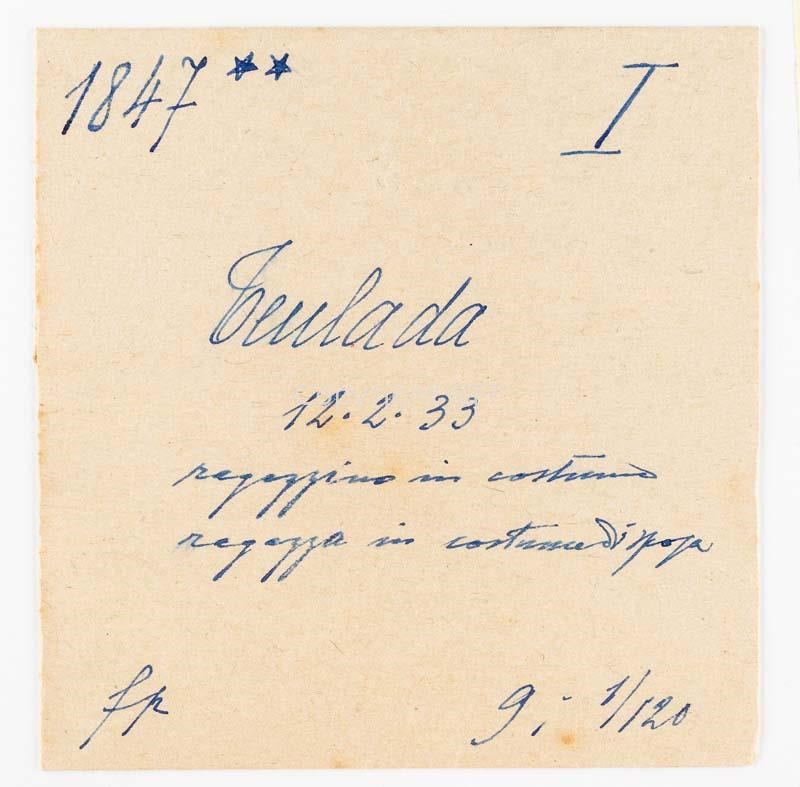 1847 ** I
Teulada
12.2.33
ragazzino in costume
ragazza in costume di sposa
fp 9; 1/120